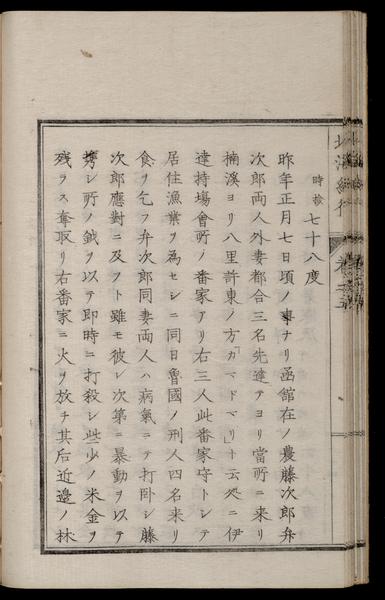 時検 七十八度
昨年正月七日頃ノ事ナリ函舘在ノ農藤次郎弁
次郎両人外妻都合三名先達テヨリ當所ニ来リ
楠溪ヨリ八里許東ノ方「カマドベリ」ト云処ニ伊
達持場會所ノ番家アリ右三人此番家守トシテ
居住漁業ヲ為セシニ同日魯國ノ刑人四名来リ
食ヲ乞フ弁次郎同妻両人ハ病氣ニテ打卧シ藤
次郎應對ニ及フト雖モ彼レ次第ニ暴動ヲ以テ
携シ所ノ鉞ヲ以テ即時ニ打殺シ些少ノ米金ヲ
残ラス奪取リ右番家ニ火ヲ放チ其后近邉ノ林
北海紀行